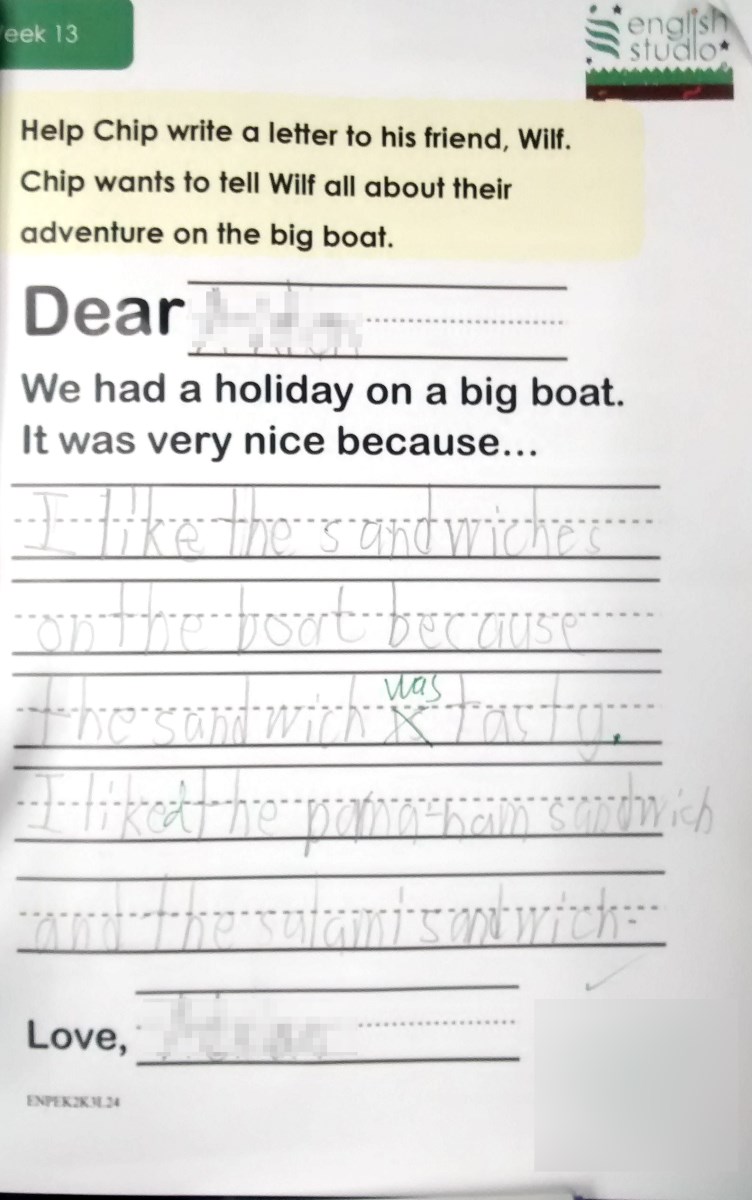 eek 13
english
studio
Help Chip write a letter to his friend, Wilf.
Chip wants to tell Wilf all about their
adventure on the big boat.
Dear
We had a holiday on a big boat.
It was very nice because...
I like the sandwiches
on the boat because
was
the sandwich tasty.
I liked the pama-ham sandwich
and the salami sandwich.
Love,
ENPEK2K3L24